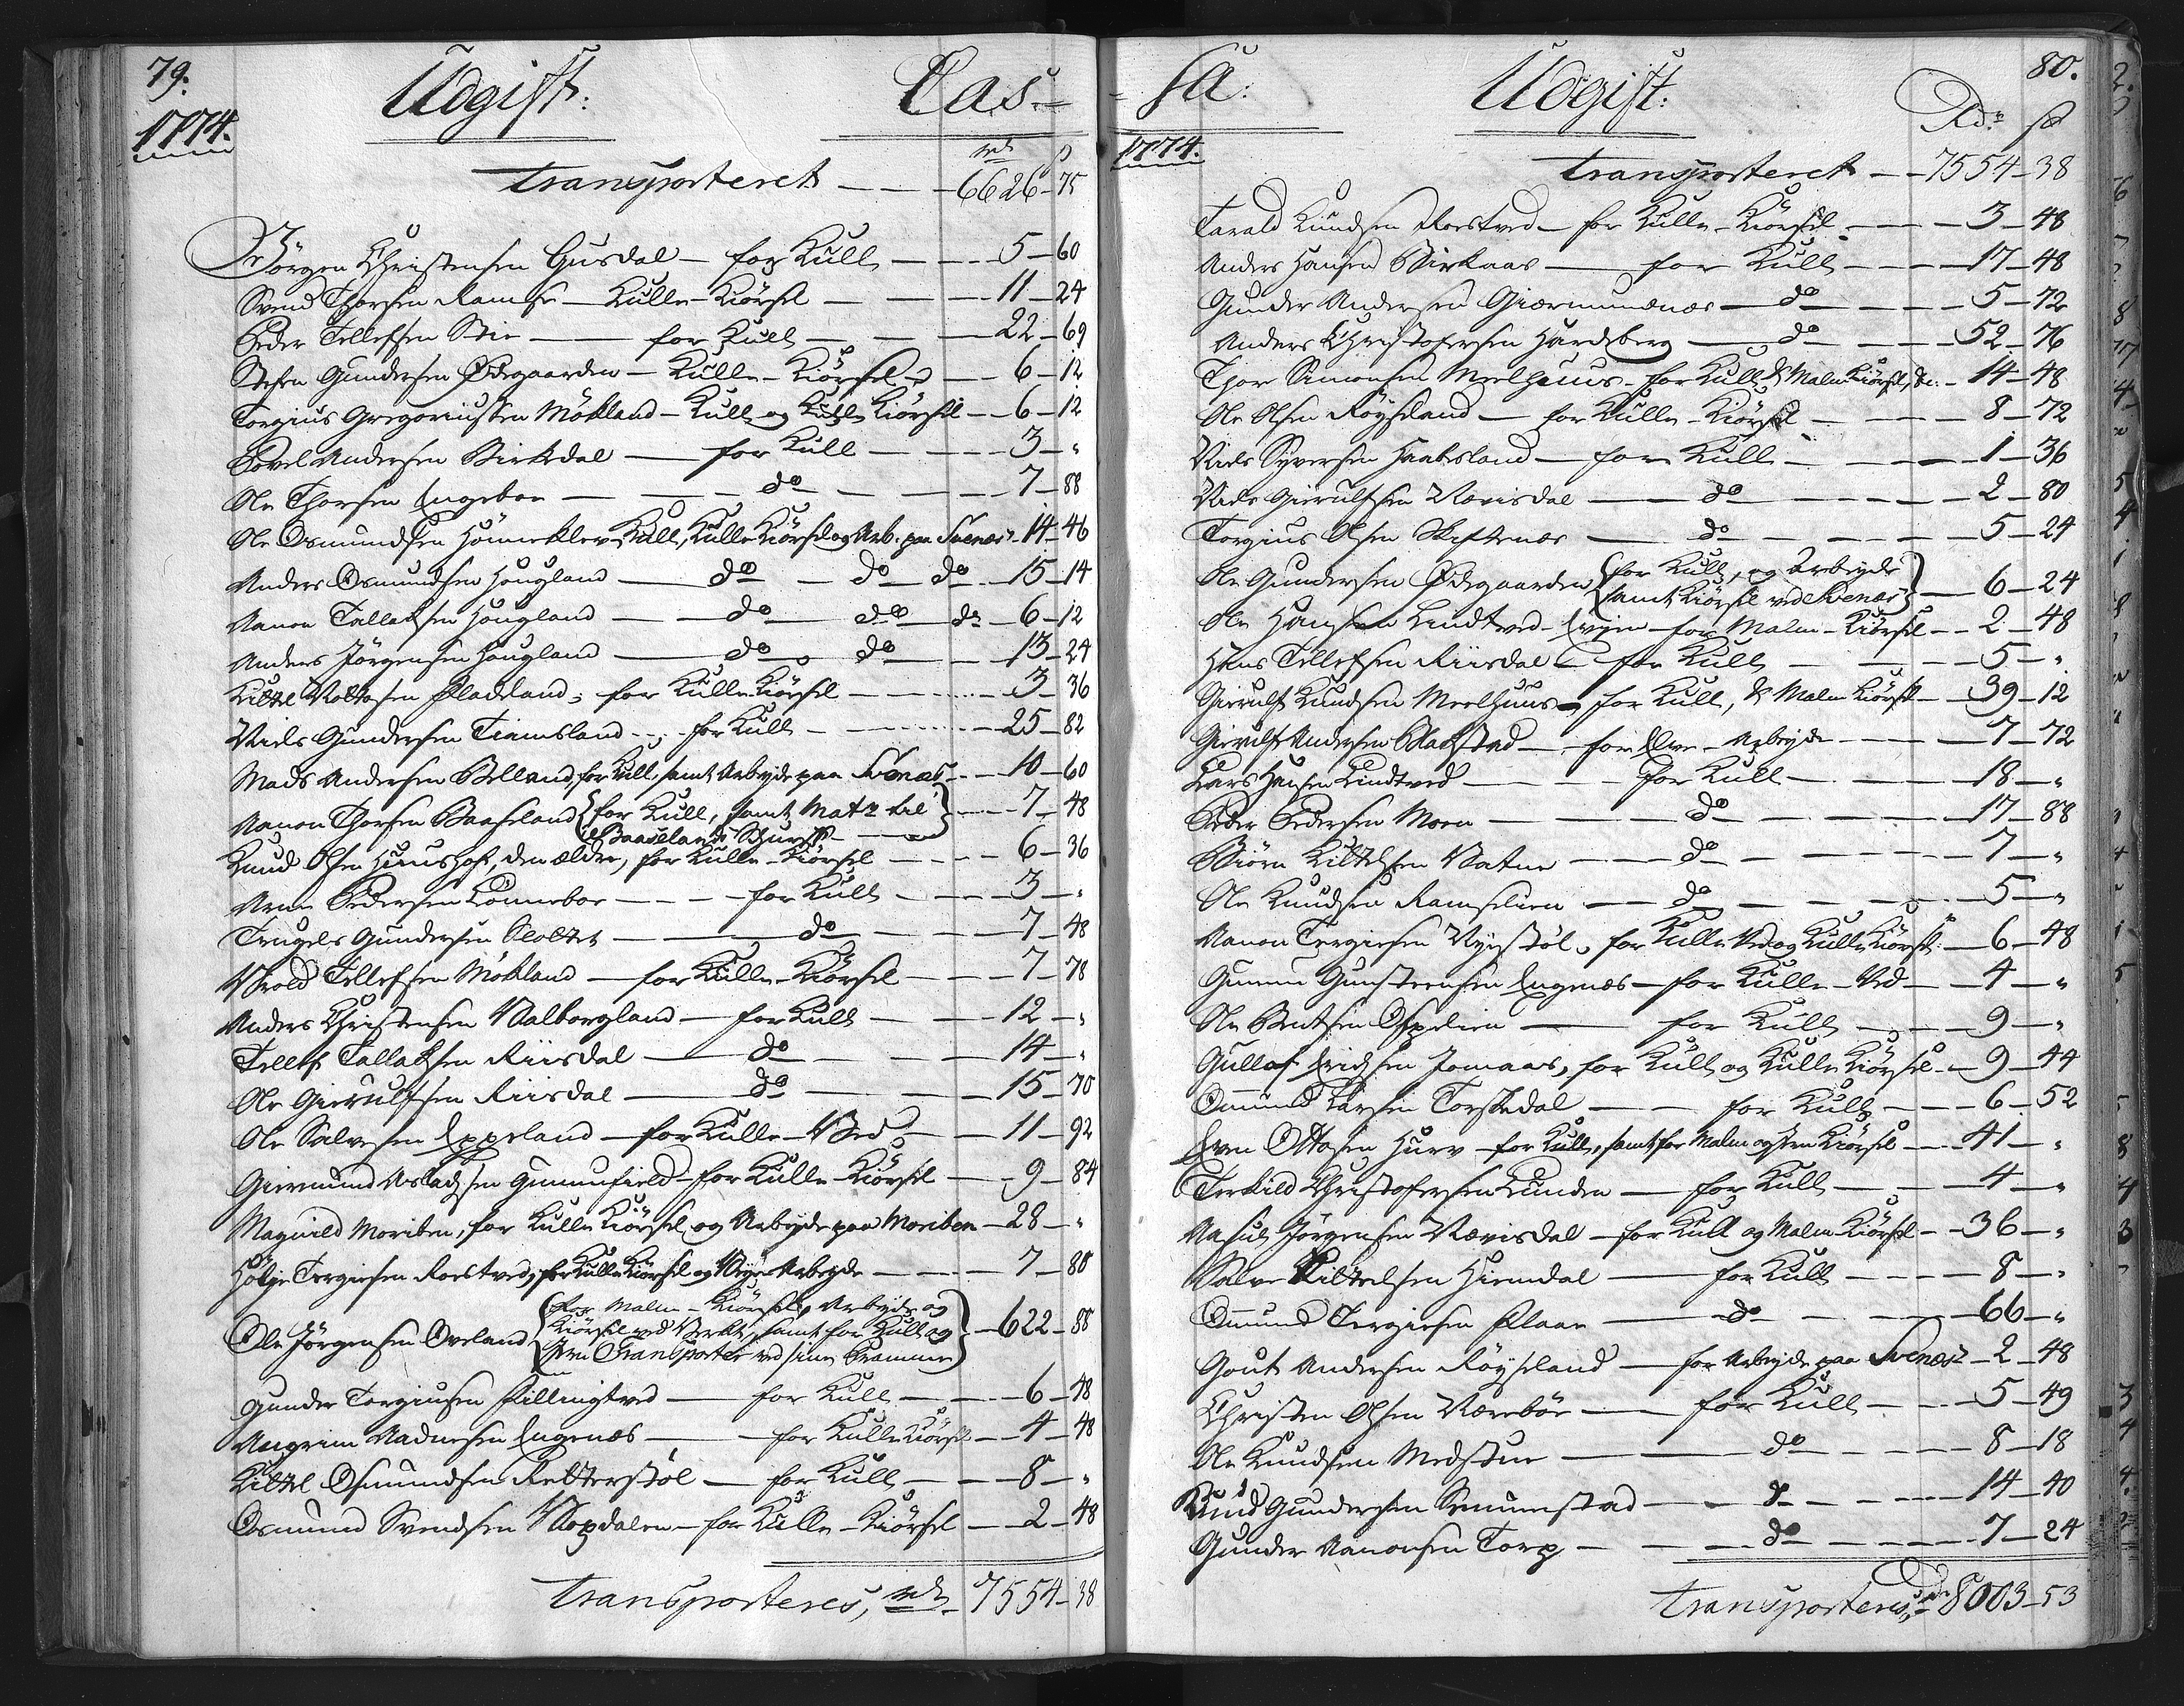 79.
Udgift:
Cas-
1774.
rd s
Transporteret — — 6626-75
Jörgen Christensen Gusdal — for Kull — — 5-60
Svend Thorsen Ramse — Kulle-Kiörsel — — 11-24
Peder Tellefsen Stie — for Kull — — 22-69
Stehen Gundersen Ødegaarden — Kulle-Kiörsel — 6-12
Torgius Gregoriussen Mökland — Kull og Kulle Kiörsel — 6-12
Povel Andersen Birkedal — for Kull — — 3-"
Ole Thorsen Engeboe — — do — — 7-88
Ole Osmundsen Hönneklev — Kull, Kulle Kiörsel og Arb. paa Svenæs - 14-46
Anders Osmundsen Hougland — do — do do — 15-14
Aanon Tallaksen Hougland — do — do do — 6-12
Anders Jörgensen Hougland — do — do — 13-24
Kittel Nottosen Fladeland, for Kulle Kiörsel — 3-36
Niels Gundersen Tiamsland — for Kull — 25-82
Mads Andersen Belland, for Kull, samt Arbeyde paa Svenæs — 10-60
Aanon Thorsen Baaseland {for Kull, samt Mat: til
Baaselands Schurf} — 7-48
Knud Olsen Huushof, den ældre, for Kulle-Kiörsel — 6-36
Arne Pedersen Lönneboe — for Kull — 3-"
Trugels Gundersen Slottet — do — 7-48
Wrold Tellefsen Mökland — for Kulle-Kiörsel — 7-78
Anders Christensen Walborgland — for Kull — 12-"
Tellef Tallaksen Riisdal — do — 14-"
Ole Gierulfsen Riisdal — do — 15-70
Ole Salvesen Eppeland — for Kulle-Ved — 11-92
Giermund Aslachsen Gunnufield — for Kulle-Kiörsel — 9-84
Magnild Moriben, for Kulle Kiörsel og Arbeyde paa Moriben — 28-"
Holje Tergiesen Roestved, for Kulle Kiörsel og Veye Arbeyde — 7-80
Ole Jörgensen Oveland {for Malm-Kiörsel, Arbeyde og
Kiörsel ved Verket, samt for Kull og
Jern Transporter ved sine Pramme} — 622-88
Gunder Torgiusen Fillingtved — for Kull — 6-48
Asgrim Aadnesen Engenæs — for Kulle Kiörsel — 4-48
Kittel Osmundsen Retterstöl — for Kull — 8-"
Osmund Svendsen Skopdalen — for Kulle-Kiörsel — 2-48
Transporteres, rd 7554-38
-sa:
Udgift:
80.
1774.
Rdr s
Transporteret — — 7554-38
Tarald Knudsen Roestved — for Kulle-Kiörsel — 3-48
Anders Hansen Birkaas — for Kull — 17-48
Gunder Andersen Giermundnæs — do — 5-72
Anders Christophersen Hardeberg — do — 52-76
Thor Simonsen Meelhuus — for Kull & Malm Kiörsel, &c. — 14-48
Ole Olsen Röyseland — for Kulle-Kiörsel — 8-72
Niels Syversen Haabesland — for Kull — 1-36
Niels Gierulfsen Nævisdal — do — 2-80
Torgius Olsen Skiftenæs — do — 5-24
Ole Gundersen Ødegaarden {for Kull, og Arbeyde
samt Kiörsel ved Svenæs} — 6-24
Ole Hansen Lindtved Eyjen — for Malm-Kiörsel — 2-48
Hans Tellefsen Riisdal — for Kull — 5-"
Gierulf Knudsen Meelhuus — for Kull, & Malm Kiörsel — 39-12
Gierulf Andersen Blachstad — for Elve-Arbeyde — 7-72
Lars Hansen Lindtved — for Kull — 18-"
Peder Pedersen Moen — do — 17-88
Biörn Kittelsen Vatne — do — 7-"
Ole Knudsen Ramselien — do — 5-"
Aanon Tergiesen Nyestöl, for Kulle Ved og Kulle Kiörsel: — 6-48
Gunnu Gunsteensen Engenæs — for Kulle-Ved — 4-"
Ole Bentsen Ospelien — for Kull — 9-"
Gullof Erichsen Jomaas, for Kull og Kulle Kiörsel — 9-44
Omund Larsen Torskedal — for Kull — 6-52
Even Ottosen Hurv — for Kull, samt for Malm og Jern Kiörsel — 41-"
Terkild Christophersen Lunden — for Kull — 4-"
Aasul Jörgensen Nævisdal — for Kull og Malm Kiörsel — 36-"
Salve Kittelsen Hiemdal — for Kull — 8-"
Omund Tergiesen Flaae — do — 66-"
Gout Andersen Röyseland — for Arbeyde paa Svenæs — 2-48
Christen Olsen Nærebör — for Kull — 5-49
Ole Knudsen Medstue — do — 8-18
Knud Gundersen Senumstad — do — 14-40
Gunder Aanonsen Torp — do — 7-24
Transporteres, Rdr 8003-53